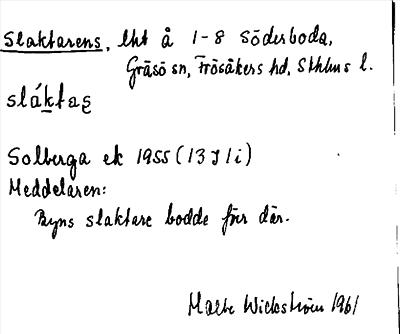 Slaktarens, lht å 1-8 Söderboda,
Gräsö sn, Frösåkers hd, Sthlms l.
sláktas̲
Solberga ek 1955 (13 I 1 i)
Meddelaren:
Byns slaktare bodde förr där.
Malte Wickström 1961